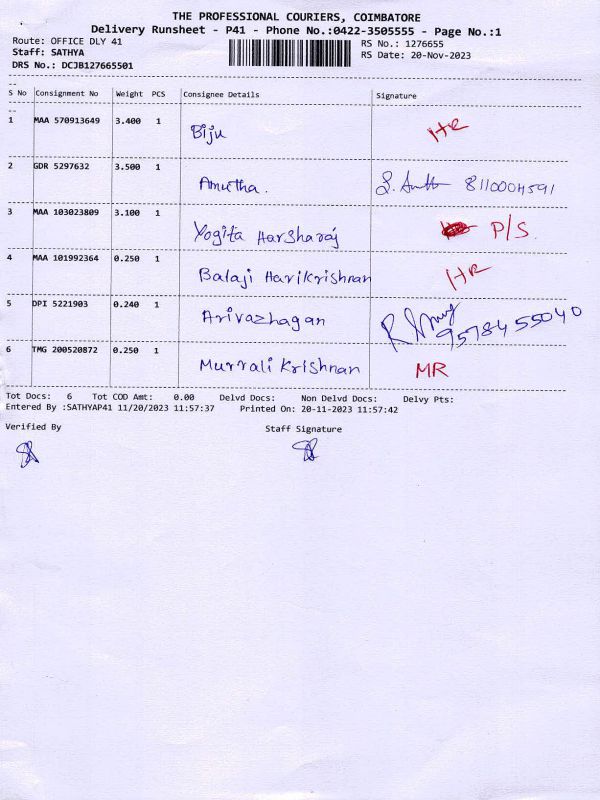 THE PROFESSIONAL COURIERS, COIMBATORE
Delivery Runsheet - P41 - Phone No.:0422-3505555 - Page No.:1
Route: OFFICE DLY 41 RS No.: 1276655
Staff: SATHYA RS Date: 20-Nov-2023
DRS No.: DCJB127665501
S No Consignment No Weight PCS Consignee Details Signature
1 MAA 570913649 3.400 1 Biju HR
2 GDR 5297632 3.500 1 Amutha. 8110004591
3 MAA 103023809 3.100 1 Yogita Harsharaj P/S.
4 MAA 101992364 0.250 1 Balaji Harikrishnan HR
5 DPI 5221903 0.240 1 Arivazhagan 9578455040
6 TMG 200520872 0.250 1 Murrali Krishnan MR
Tot Docs: 6 Tot COD Amt: 0.00 Delvd Docs: Non Delvd Docs: Delvy Pts:
Entered By :SATHYAP41 11/20/2023 11:57:37 Printed On: 20-11-2023 11:57:42
Verified By Staff Signature